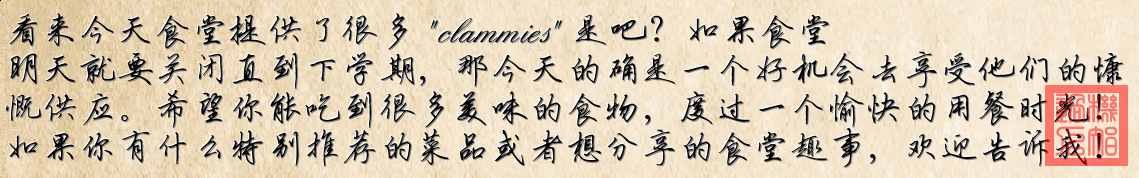 看来今天食堂提供了很多"clammies"是吧？如果食堂
明天就要关闭直到下学期，那今天的确是一个好机会去享受他们的慷
慨供应。希望你能吃到很多美味的食物，度过一个愉快的用餐时光！
如果你有什么特别推荐的菜品或者想分享的食堂趣事，欢迎告诉我！